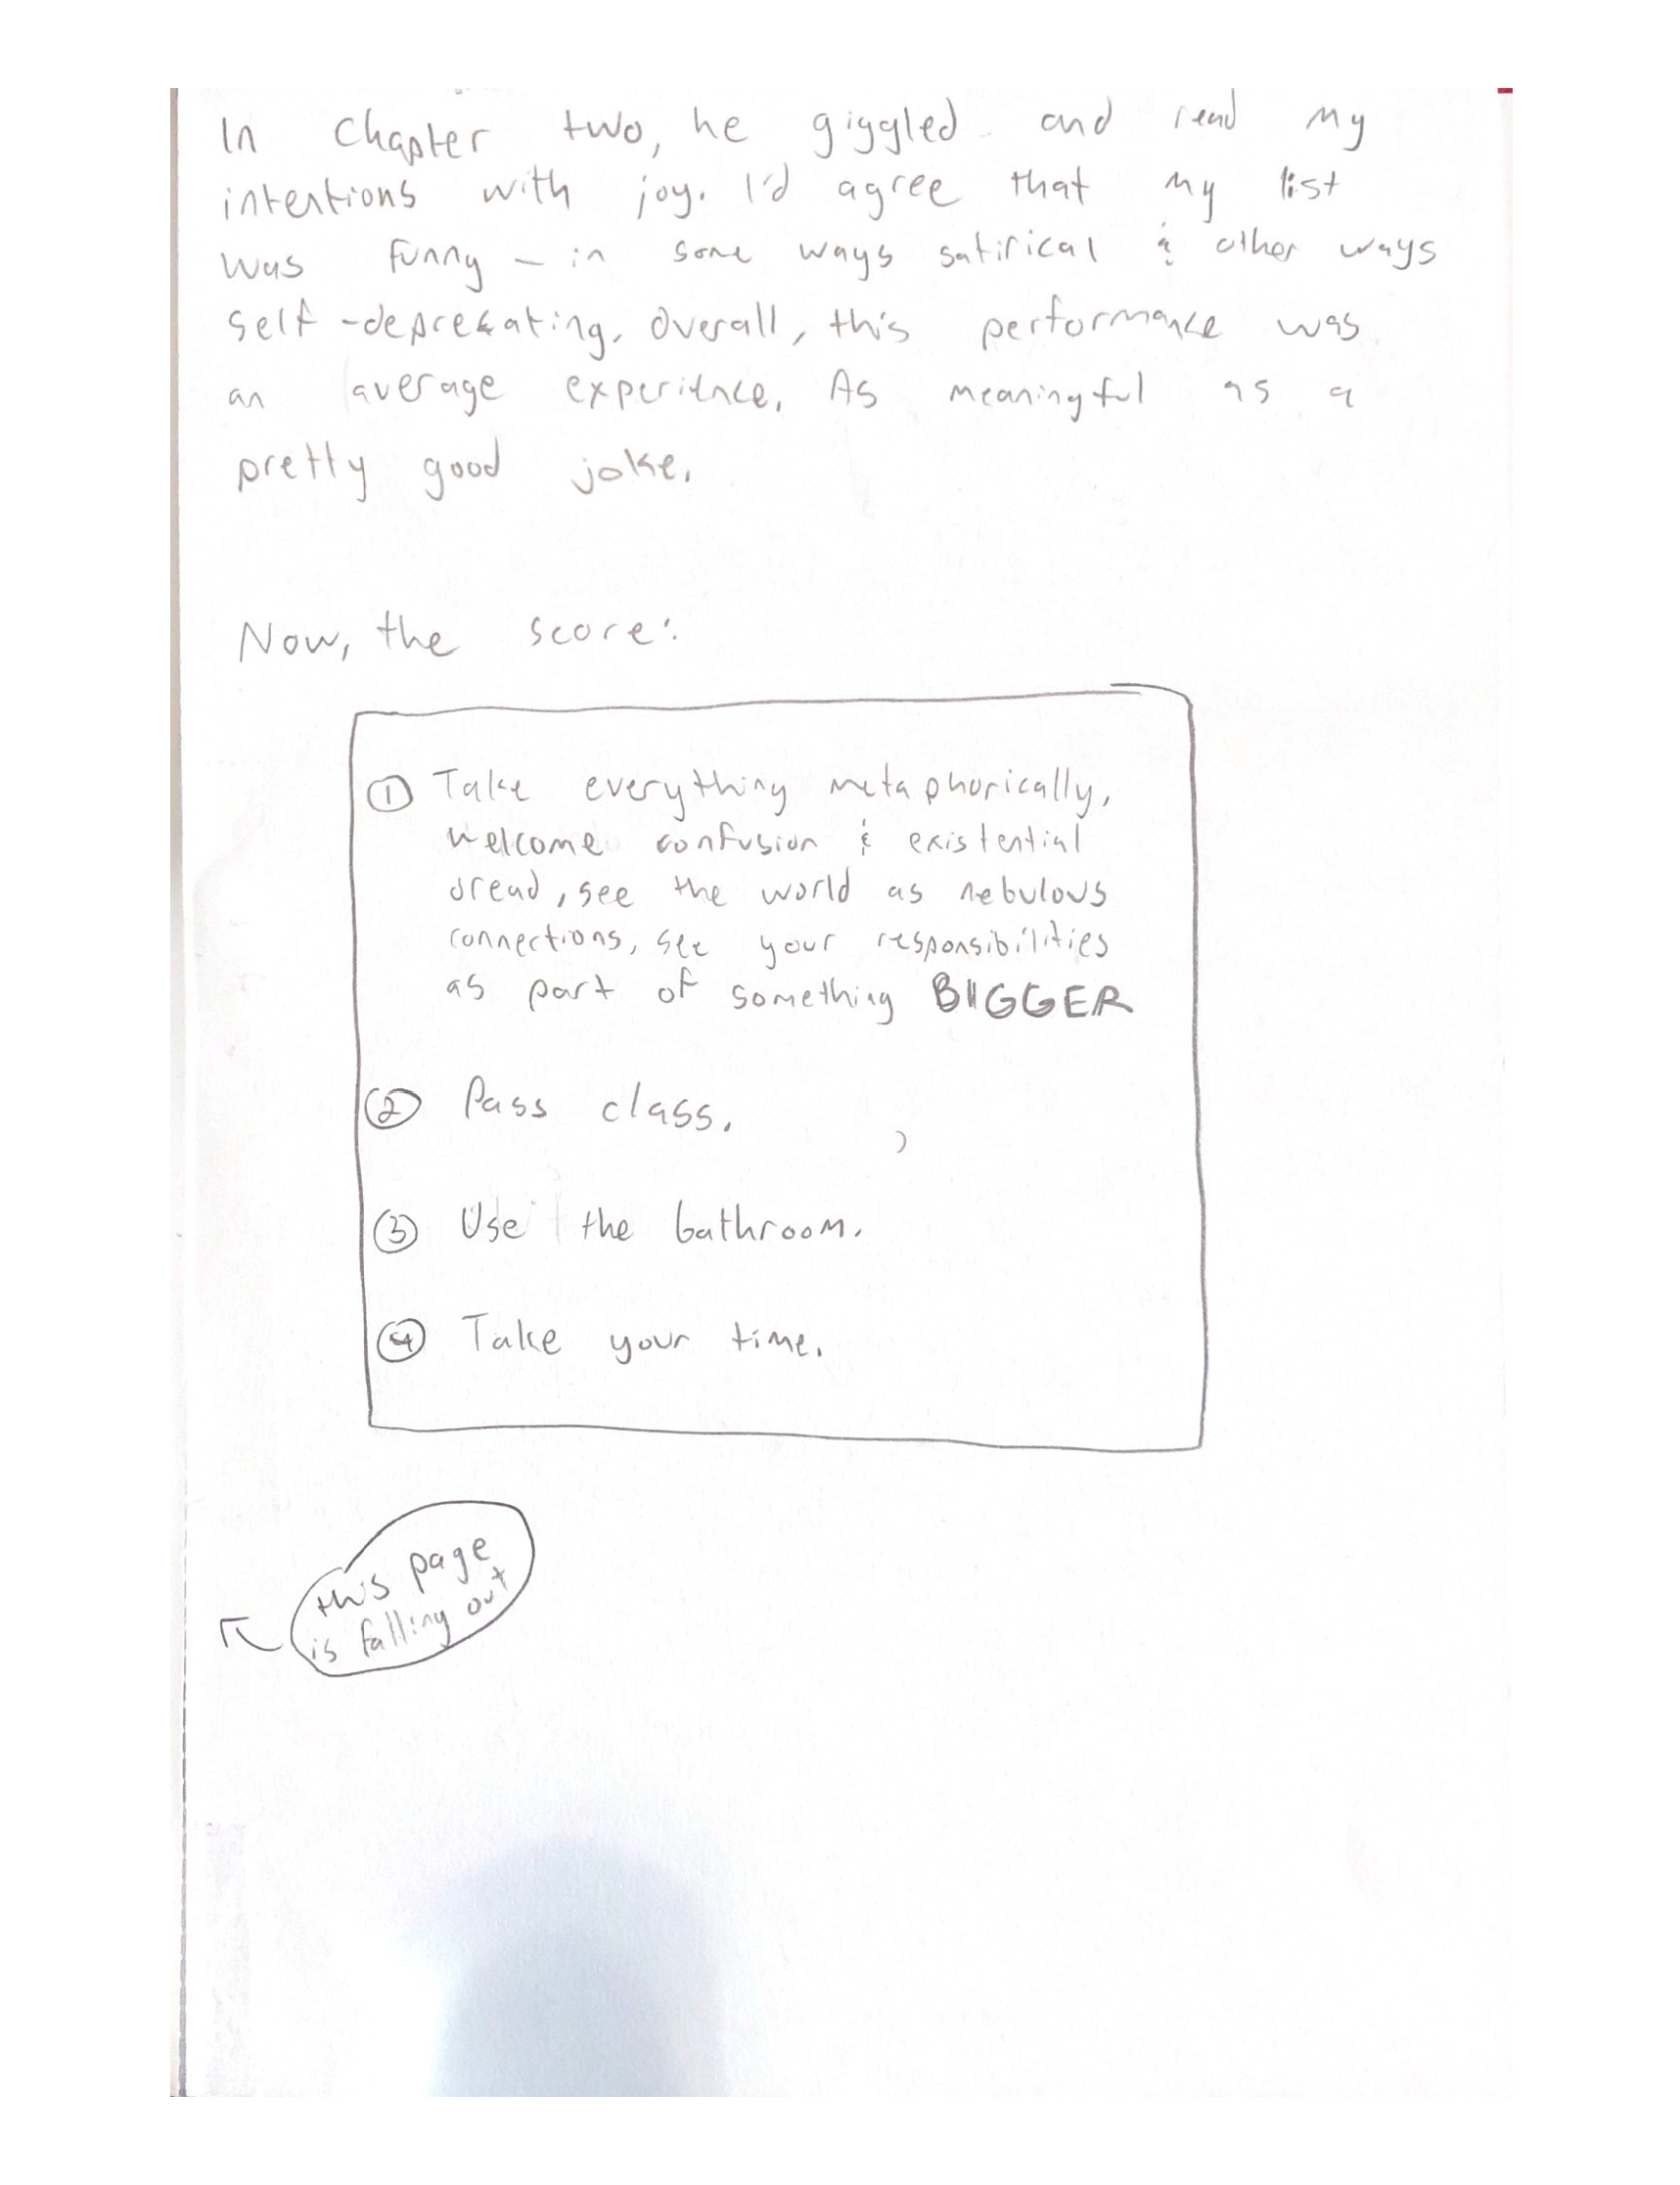 In Chapter two, he giggled and read my
intentions with joy. I'd agree that my list
was funny – in some ways satirical & other ways
self-deprecating. Overall, this performance was
an average experience. As meaningful as a
pretty good joke.
Now, the score:
① Take everything metaphorically,
welcome confusion & existential
dread, see the world as nebulous
connections, see your responsibilities
as part of something BIGGER
② Pass class.
③ Use the bathroom.
④ Take your time.
this page
is falling out